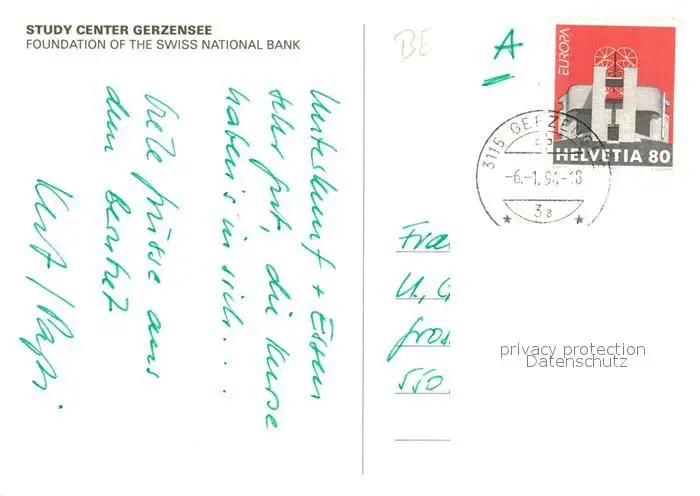 STUDY CENTER GERZENSEE
FOUNDATION OF THE SWISS NATIONAL BANK
Unterkunft + Essen
sehr gut, die Kurse
haben's in sich...
Viele Grüsse aus
dem
Kurt /
BE
A
EUROPA
HELVETIA 80
3115 GERZENSEE
-6.-1.94-18
3a
Fra
U, G
gros
550
privacy protection
Datenschutz